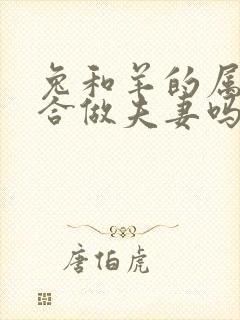 兔和羊的属
合做夫妻吗
唐伯虎